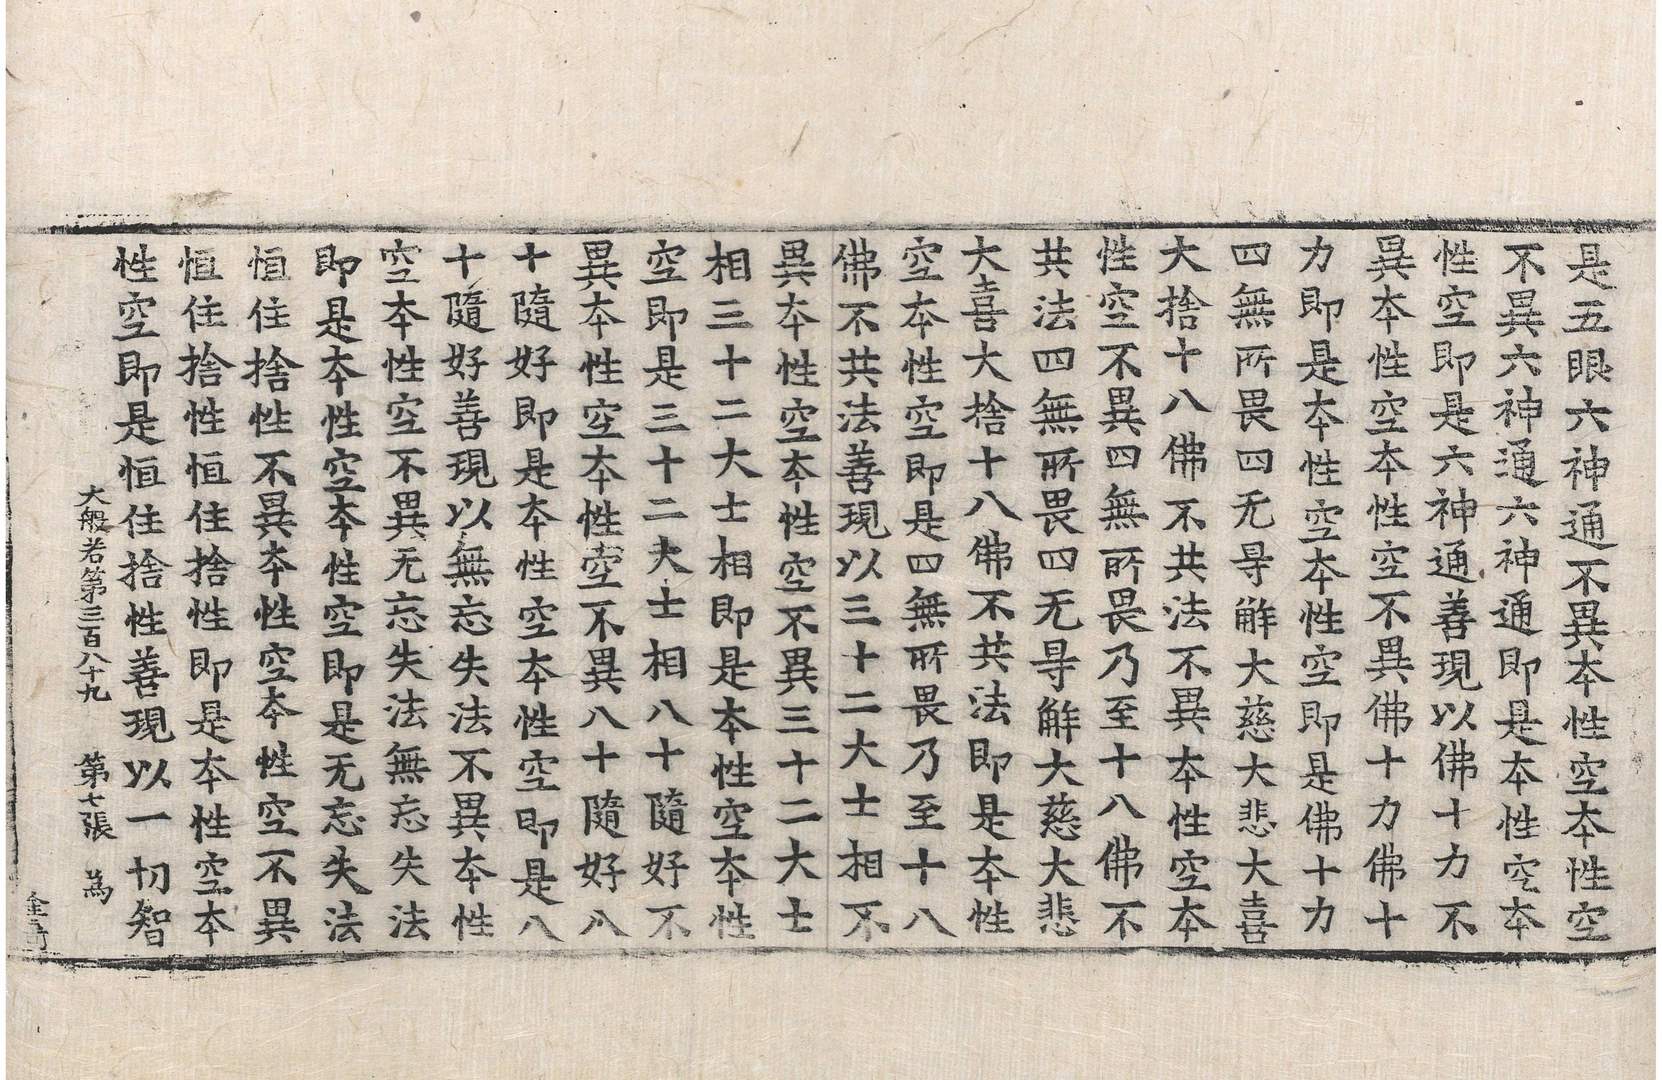 是五眼六神通不異本性空本性空
不異六神通六神通即是本性空本
性空即是六神通善現以佛十力不
異本性空本性空不異佛十力佛十
力即是本性空本性空即是佛十力
四無所畏四无㝵解大慈大悲大喜
大捨十八佛不共法不異本性空本
性空不異四無所畏乃至十八佛不
共法四無所畏四无㝵解大慈大悲
大喜大捨十八佛不共法即是本性
空本性空即是四無所畏乃至十八
佛不共法善現以三十二大士相不
異本性空本性空不異三十二大士
相三十二大士相即是本性空本性
空即是三十二大士相八十隨好不
異本性空本性空不異八十隨好八
十隨好即是本性空本性空即是八
十隨好善現以無忘失法不異本性
空本性空不異无忘失法無忘失法
即是本性空本性空即是无忘失法
恒住捨性不異本性空本性空不異
恒住捨性恒住捨性即是本性空本
性空即是恒住捨性善現以一切智
大般若第三百八十九 第七張 為
金